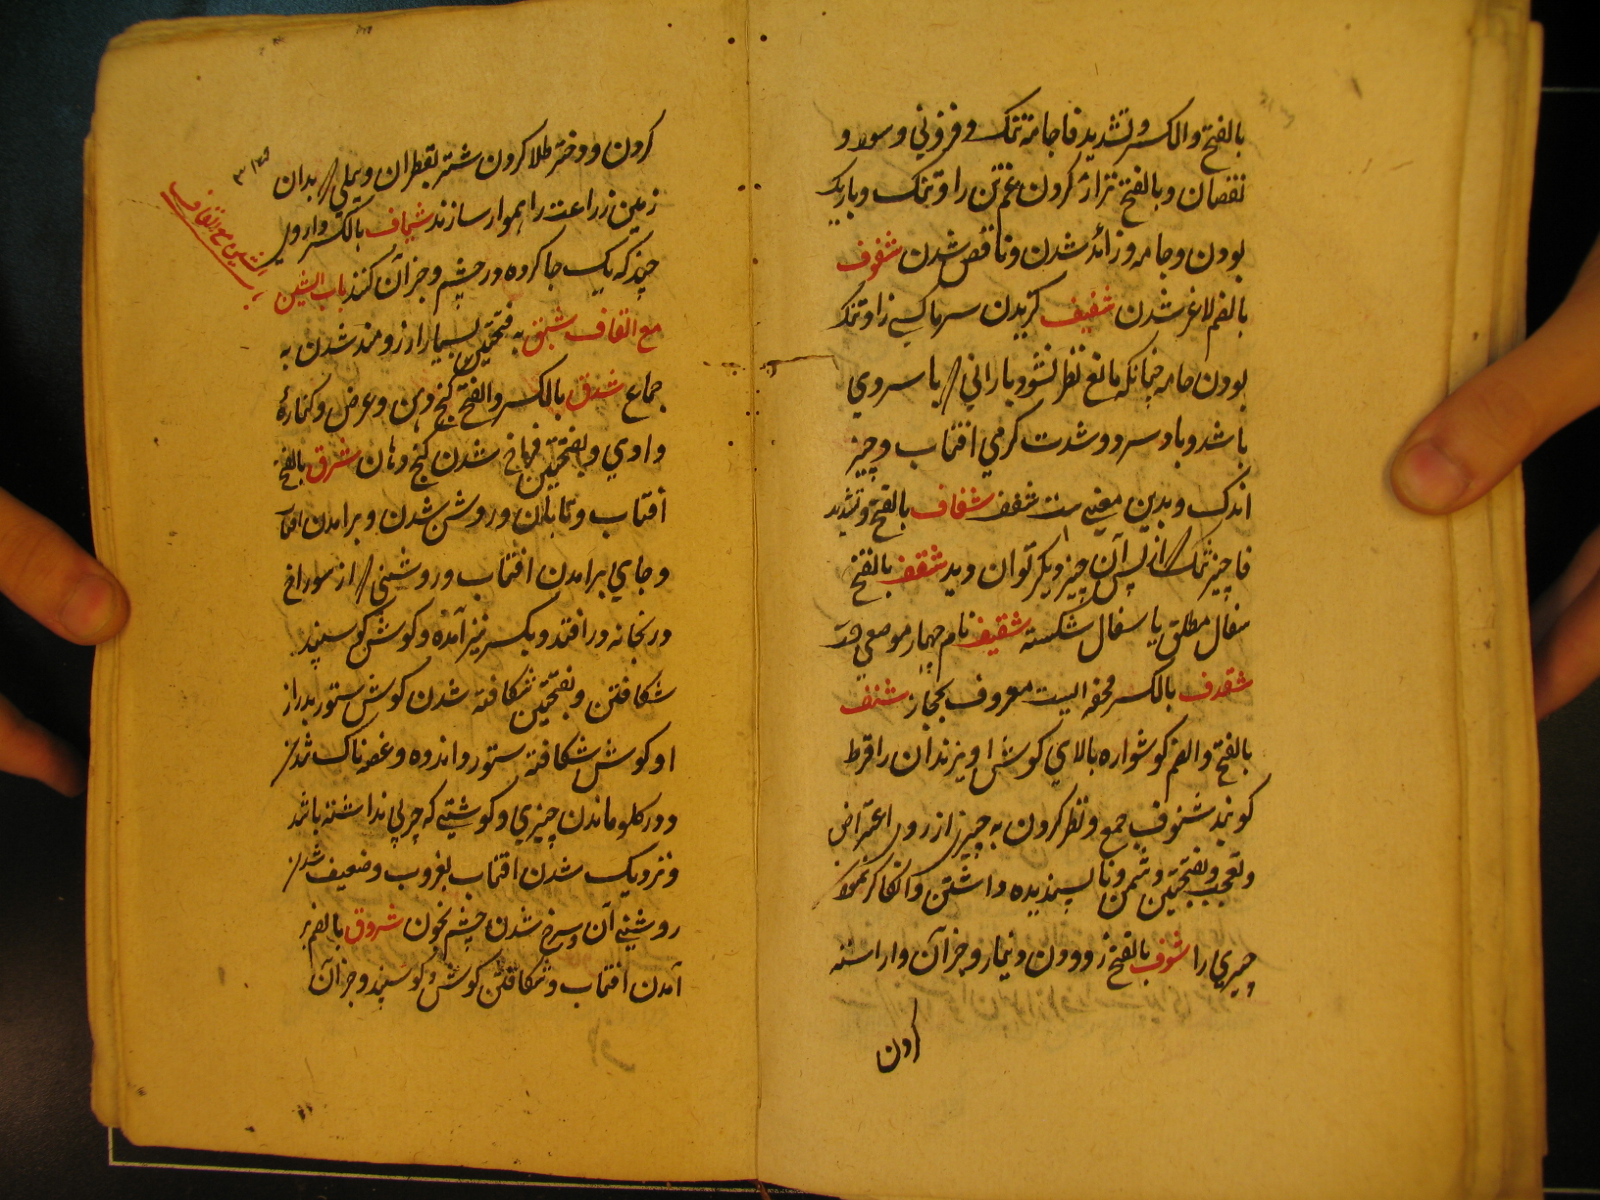 بالفتح والکسر وتشدید فا جامهٔ تنک و فزونی و سود و
نقصان و بالفتح نزار کردن غم تن را و تنک و باریک
بودن وجامه و زائد شدن و ناقص شدن شفوف
بالضم لاغر شدن شفیف گزیدن سرما کسے را و تنک
بودن جامه چنانکه مانع نظر نشود بارانی که با سردی
باشد و باد سرد و شدت گرمی افتاب و چیز
اندک و بدین معنی ست شفف شفاف بالفتح و تشدید
فا چیز تنک که از پس آن چیز دیگر توان دید شقف بالفتح
سفال مطلق یا سفال شکسته شقیف نام چهار موضع است
شقدف بالکسر محفه ایست معروف بحجاز شنف
بالفتح والضم گوشواره بالای گوش اویزند ان را قرط
گویند شنوف جمع و نظر کردن به چیزی از روی اعتراض
و تعجب و بفتحتین دشمن و ناپسندیده داشتن و انکار نمودن
چیزی را شوف بالفتح زدودن دینار و جز آن و اراسته
کردن
کردن و دختر طلا کردن شتر بقطران و بیلی که بدان
زمین زراعت را هموار سازند شیاف بالکسر داروی
چند که یک جا کرده در چشم و جز آن کنند باب الشین
مع القاف شبق به فتحتین بسیار ارزومند شدن به
جماع شدق بالکسر والفتح کنج دهن و عرض و کنارهٔ
وادی و بفتحتین فراخ شدن کنج دهان شرق بالفتح
افتاب و تابان و روشن شدن و برامدن افتاب
و جای برامدن افتاب و روشنی که از سوراخ
در خانه در افتد و بکسر نیز آمده و گوش گوسپند
شکافتن و بفتحتین شکافته شدن گوش ستور بدراز
او گوش شکافته ستور و اندوه و غصه ناک شدن
و در گلو ماندن چیزی و گوشتے که چربی نداشته باشد
و نزدیک شدن افتاب بغروب و ضعیف شدن
روشنے آن و سرخ شدن چشم بخون شروق بالضم بر
آمدن افتاب و شکافتن گوش گوسپند و جز آن
الشین مع القاف